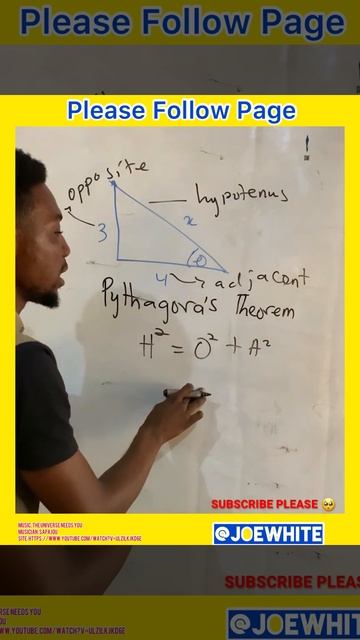 Please Follow Page
Please Follow Page
opposite
hypotenus
3
x
θ
4
adjacent
Pythagora's Theorem
H² = O² + A²
SUBSCRIBE PLEASE 🥺
MUSIC: THE UNIVERSE NEEDS YOU
MUSICIAN: SAPAJOU
SITE: HTTPS://WWW.YOUTUBE.COM/WATCH?V=ULZILKJKDGE
@JOEWHITE
SUBSCRIBE PLEAS
RSE NEEDS YOU
OU
WW.YOUTUBE.COM/WATCH?V=ULZILKJKDGE
@JOEWHITE